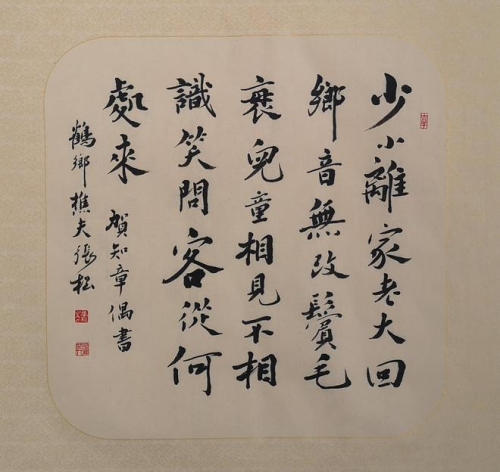 少小離家老大回
鄉音無改鬢毛
衰兒童相見不相
識笑問客從何
處來
賀知章偶書
鶴鄉樵夫張松